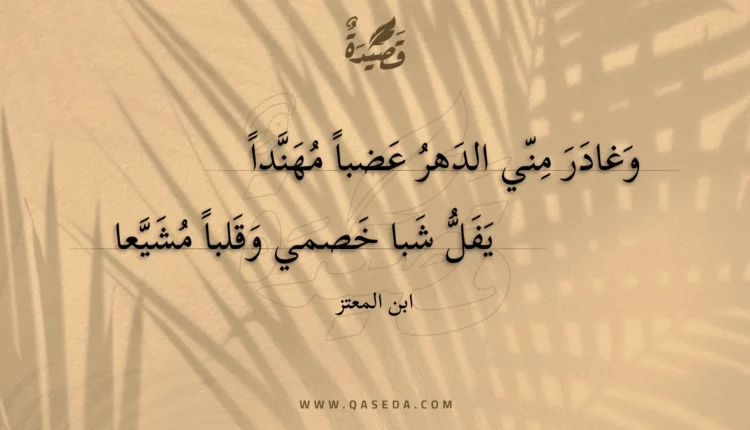 قَصِيْدَةٌ
وَغادَرَ مِنّي الدَهرُ عَضباً مُهَنَّداً
يَفَلُّ شَبا خَصمي وَقَلباً مُشَيَّعا
ابن المعتز
WWW.QASEDA.COM